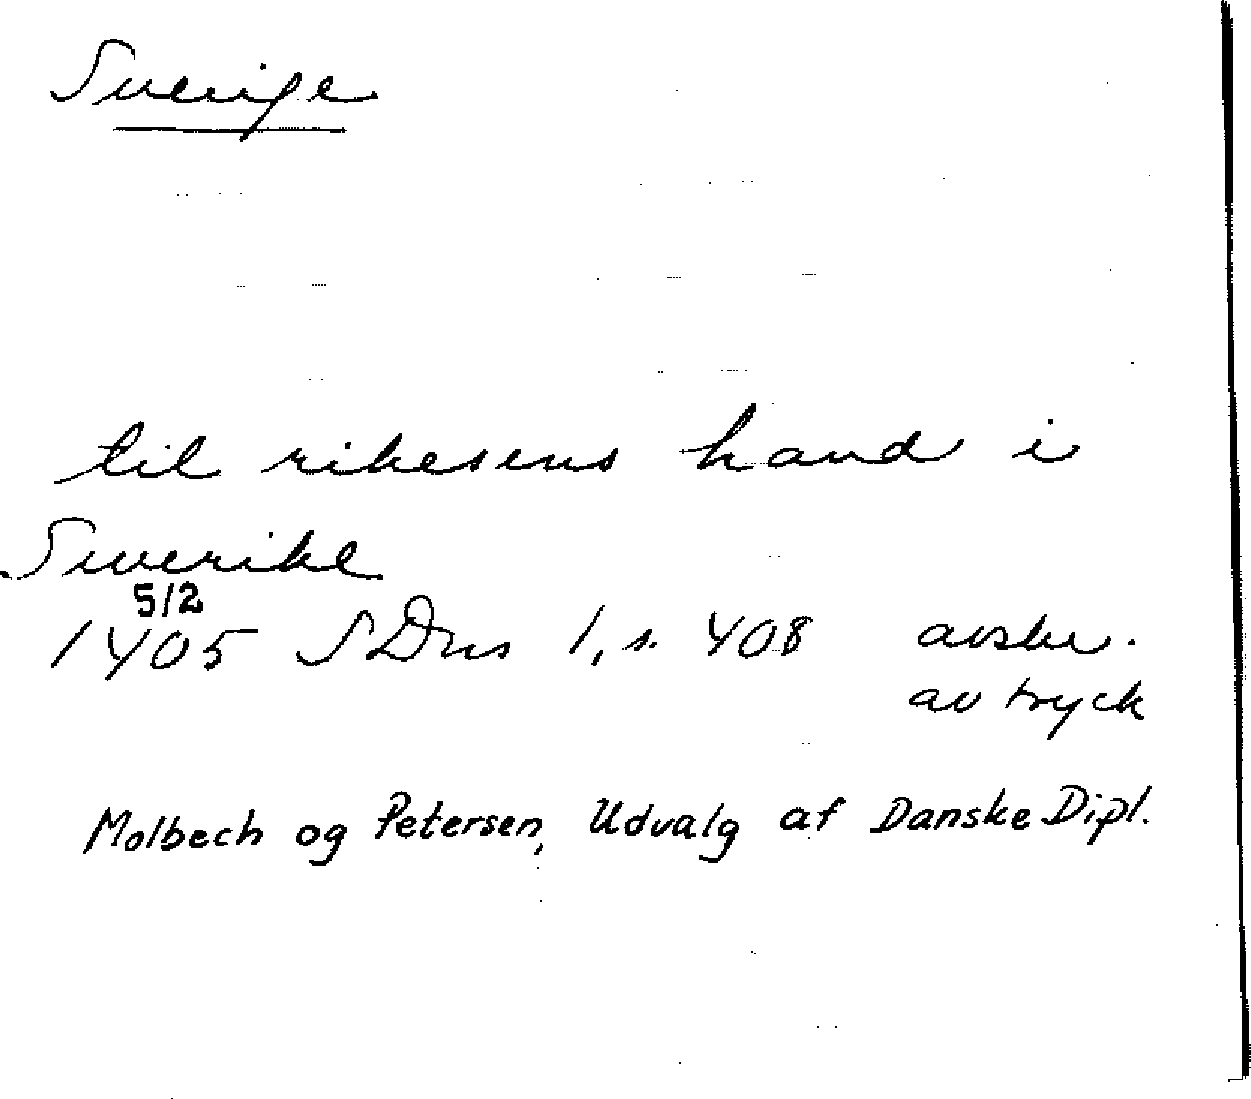 Sverige
til rikesens hand i
Swerike
5/2
1405 SDns 1, s. 408 avskr.
av tryck
Molbech og Petersen, Udvalg af Danske Dipl.